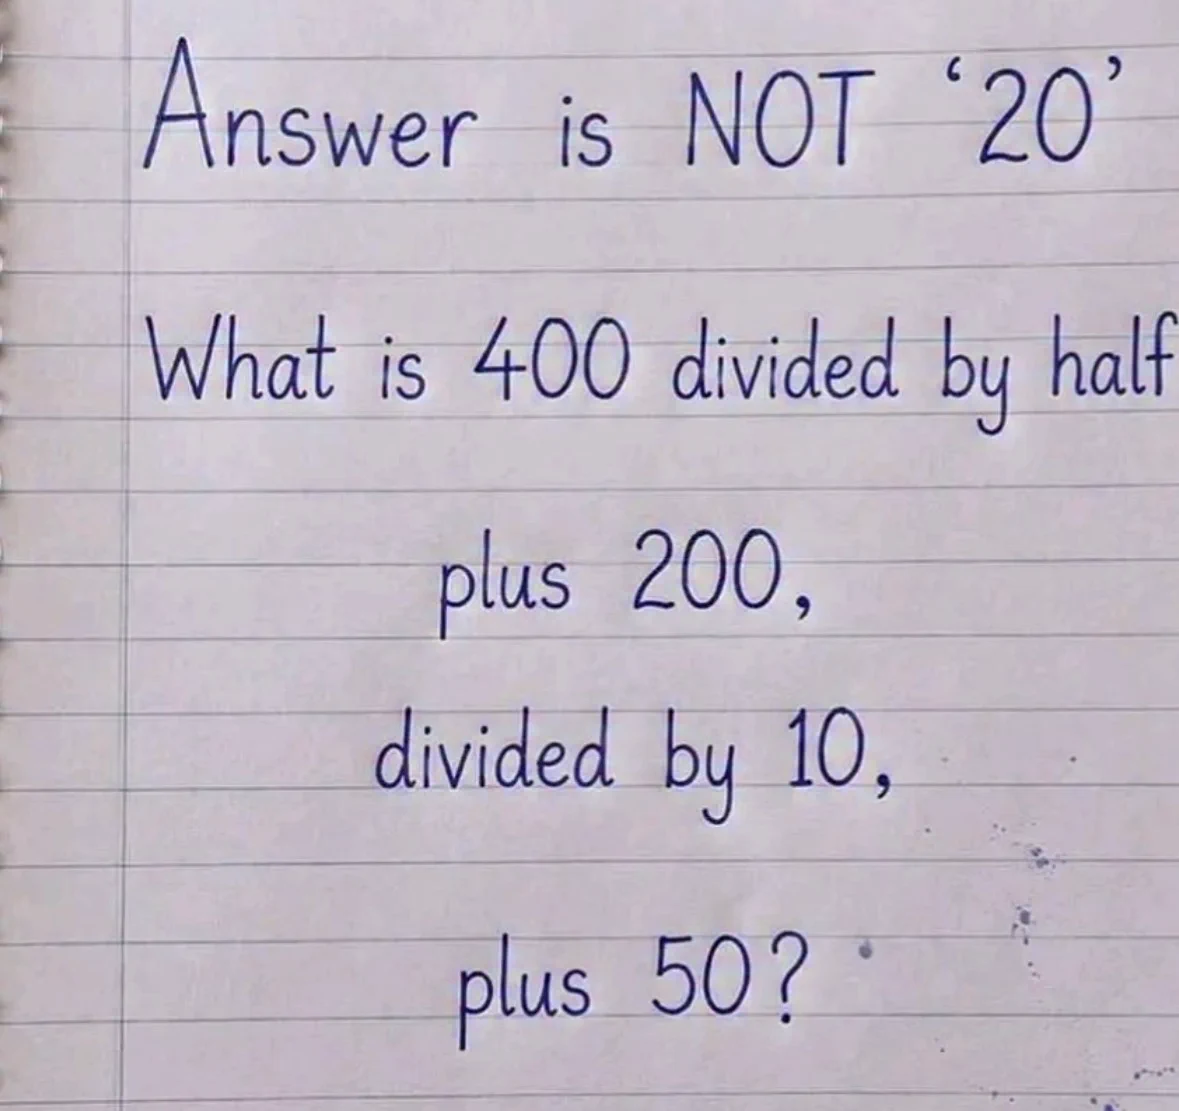 Answer is NOT ‘20’
What is 400 divided by half
plus 200,
divided by 10,
plus 50?